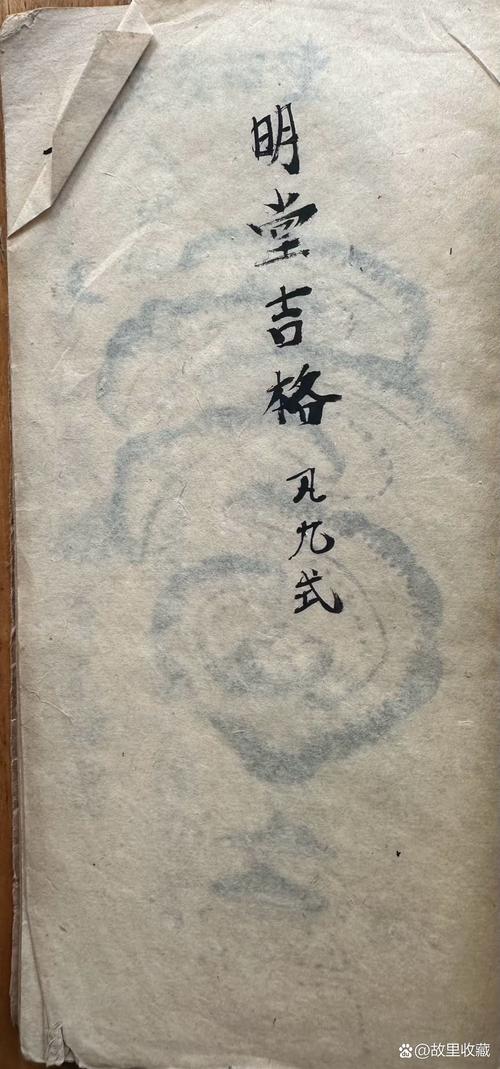 明堂吉格 凡九式
@故里收藏